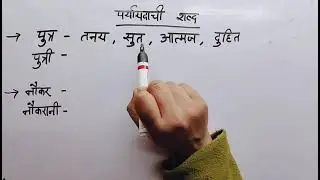 पर्यायवाची शब्द
→ पुत्र - तनय, सुत, आत्मज, दुहित
पुत्री -
→ नौकर -
नौकरानी -